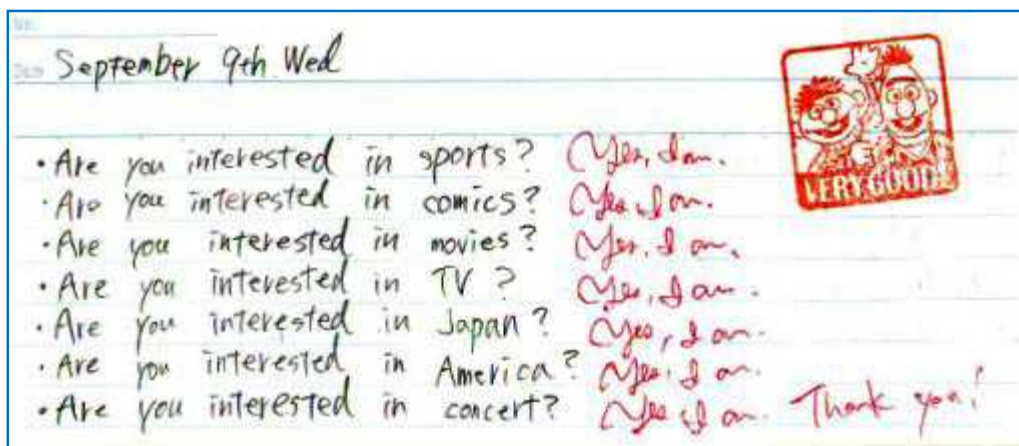 No.
Date September 9th Wed
VERY GOOD!
· Are you interested in sports? Yes, I am.
· Are you interested in comics? Yes, I am.
· Are you interested in movies? Yes, I am.
· Are you interested in TV? Yes, I am.
· Are you interested in Japan? Yes, I am.
· Are you interested in America? Yes, I am.
· Are you interested in concert? Yes I am. Thank you!